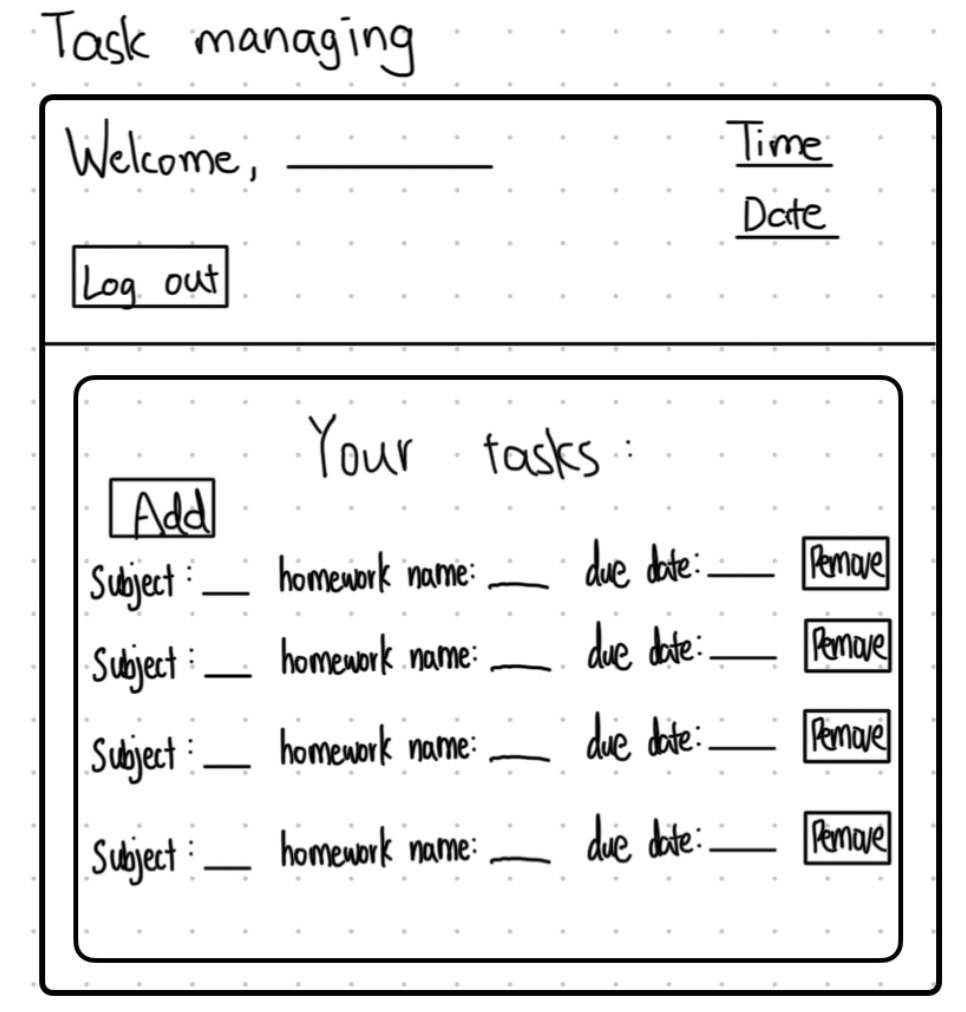 Task managing
Welcome, ______
Time
Date
Log out
Your tasks:
Add
Subject: __ homework name: __ due date: __ Remove
Subject: __ homework name: __ due date: __ Remove
Subject: __ homework name: __ due date: __ Remove
Subject: __ homework name: __ due date: __ Remove